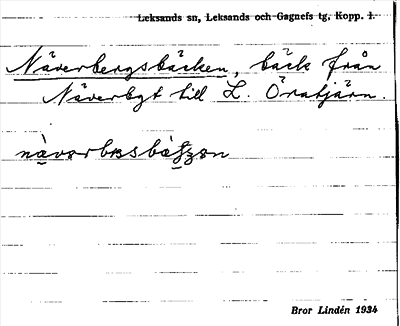 Leksands sn, Leksands och Gagnefs tg, Kopp. l.
Näverbergsbäcken, bäck från
Näverbgt till L. Öratjärn.
Bror Lindén 1934